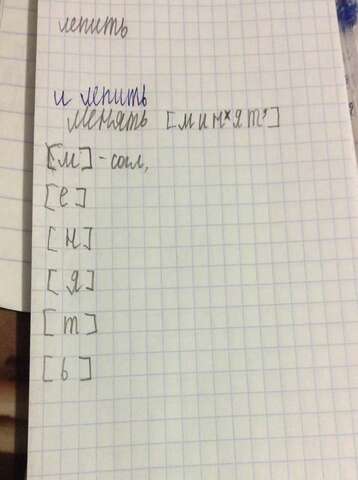 лепить
и лепить
менять [минˣят']
[м] - согл,
[е]
[н]
[я]
[т]
[ь]